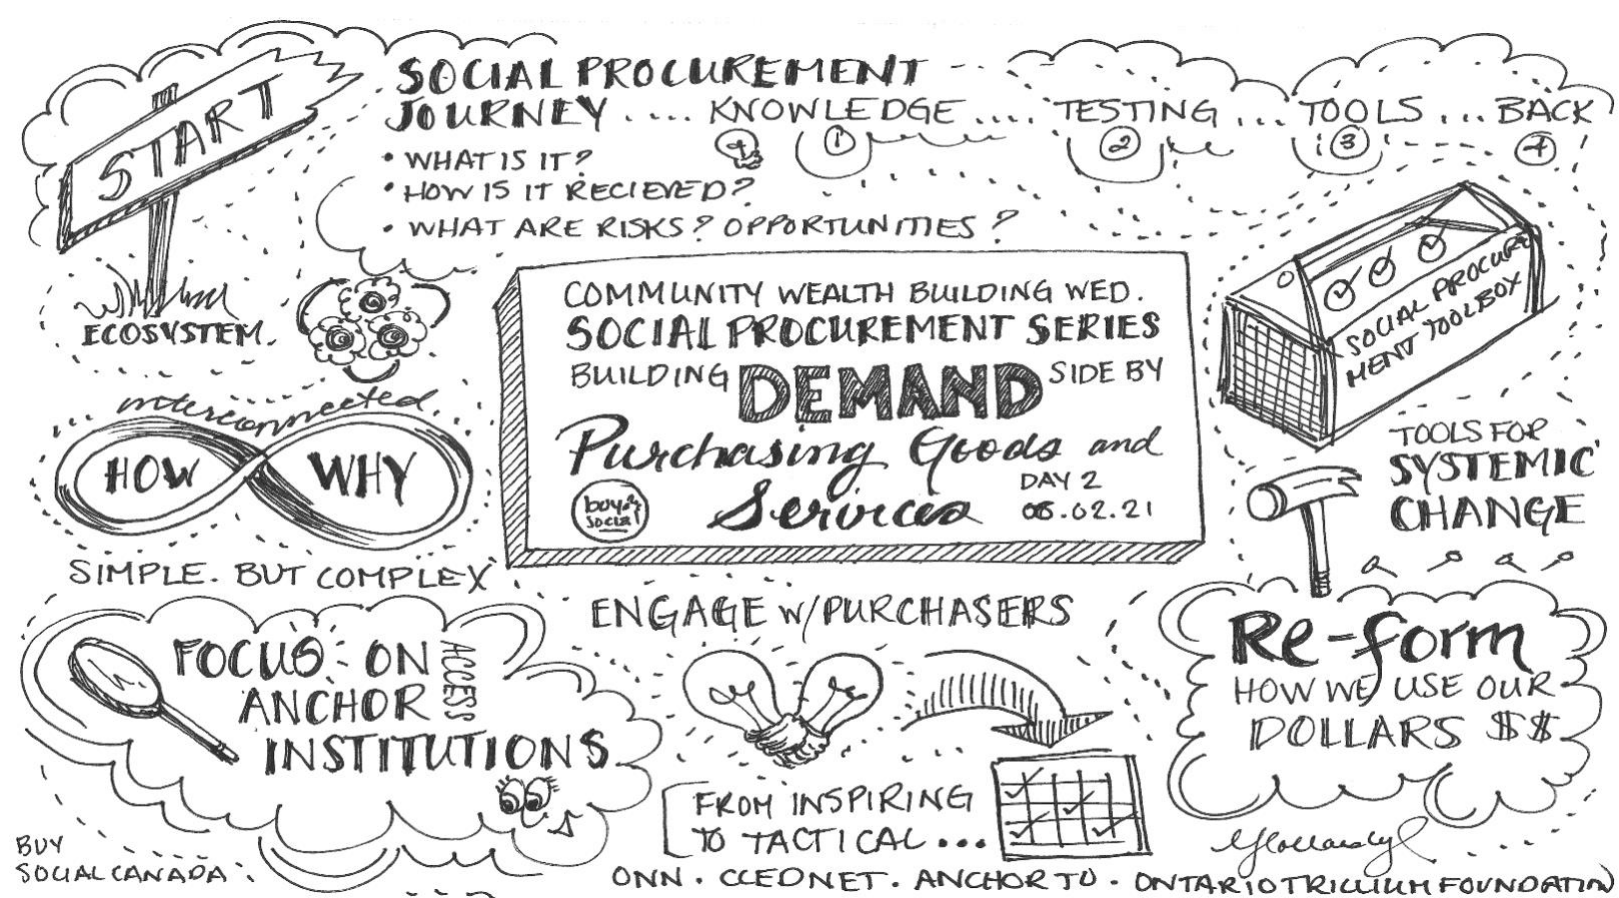 START
SOCIAL PROCUREMENT
JOURNEY .... KNOWLEDGE .... TESTING ... TOOLS ... BACK
1 2 3 4
• WHAT IS IT?
• HOW IS IT RECIEVED?
• WHAT ARE RISKS? OPPORTUNITIES?
ECOSYSTEM.
interconnected.
HOW WHY
SIMPLE. BUT COMPLEX
COMMUNITY WEALTH BUILDING WED.
SOCIAL PROCUREMENT SERIES
BUILDING DEMAND SIDE BY
Purchasing Goods and
Services
DAY 2
06.02.21
buy
social
SOCIAL PROCURE
MENT TOOLBOX
TOOLS FOR
SYSTEMIC
CHANGE
FOCUS ON
ACCESS
ANCHOR
INSTITUTIONS
ENGAGE W/PURCHASERS
[FROM INSPIRING
TO TACTICAL...
Re-form
HOW WE USE OUR
DOLLARS $$
BUY
SOCIAL CANADA
ONN. CCEDNET. ANCHOR TO. ONTARIO TRILLIUM FOUNDATION